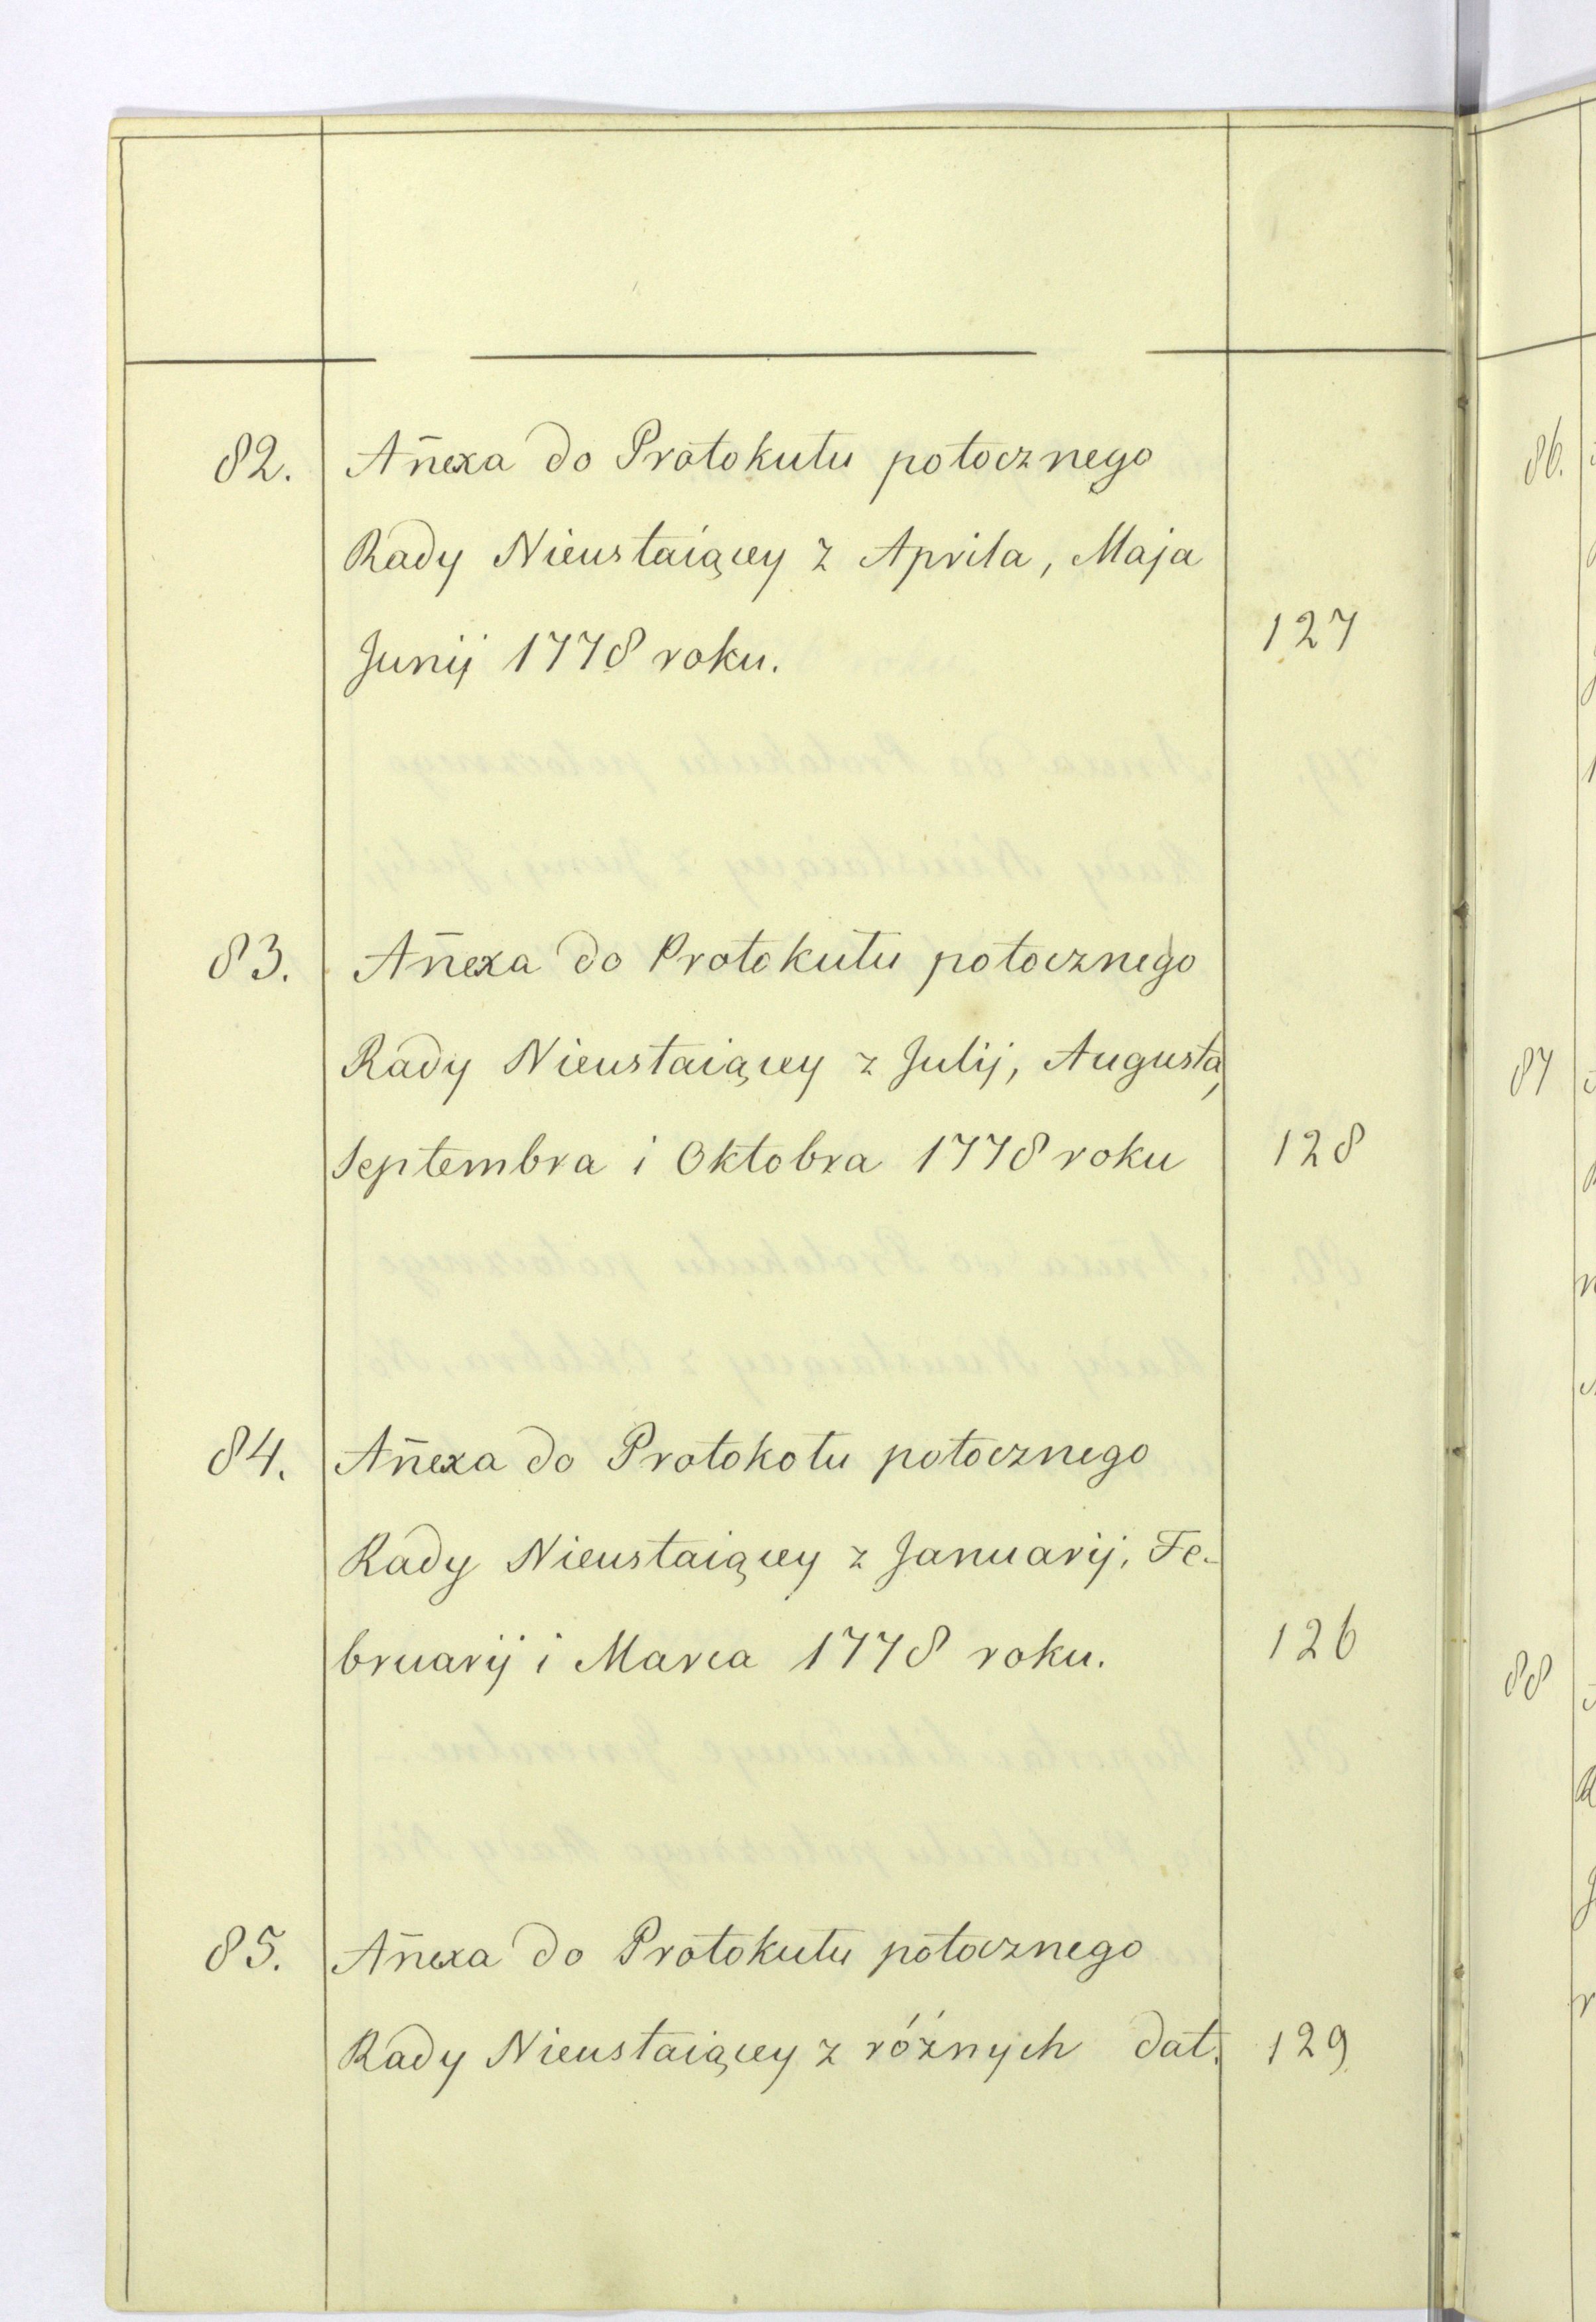 82. Añexa do Protokułu potocznego
Rady Nieustaiącey z Aprila, Maja
Junij 1778 roku. 127
83. Añexa do Protokułu potocznego
Rady Nieustaiącey z Julij, Augusta,
Septembra i Oktobra 1778 roku 128
84. Añexa do Protokołu potocznego
Rady Nieustaiącey z Januarij, Fe-
bruarij i Marca 1778 roku. 126
85. Añexa do Protokułu potocznego
Rady Nieustaiącey z różnych dat. 129
86.
87
88